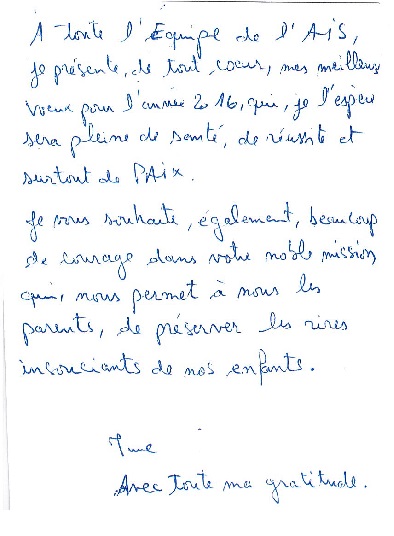 A toute l'Equipe de l'AiS,
je présente, de tout coeur, mes meilleurs
voeux pour l'année 2016, qui, je l'espère
sera pleine de santé, de réussite et
surtout de PAix.
Je vous souhaite, également, beaucoup
de courage dans votre noble mission
qui, nous permet à nous les
parents, de préserver les rires
insouciants de nos enfants.
Mme
Avec Toute ma gratitude.